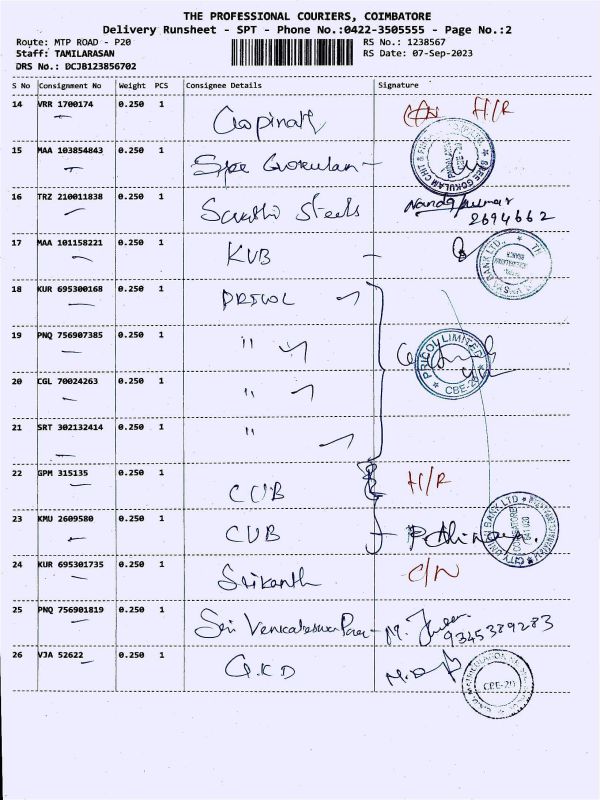 THE PROFESSIONAL COURIERS, COIMBATORE
Delivery Runsheet - SPT - Phone No.:0422-3505555 - Page No.:2
Route: MTP ROAD - P20
RS No.: 1238567
Staff: TAMILARASAN
RS Date: 07-Sep-2023
DRS No.: DCJB123856702
S No Consignment No Weight PCS Consignee Details Signature
14 VRR 1700174 0.250 1 Gopinath H/R
15 MAA 103854843 0.250 1 Sree Gokulam
16 TRZ 210011838 0.250 1 Sakthi Steels Nandakumar
2694662
17 MAA 101158221 0.250 1 KVB
18 KUR 695300168 0.250 1 PRICOL
19 PNQ 756907385 0.250 1 "
PRICOL LIMITED
CBE-20
20 CGL 70024263 0.250 1 "
21 SRT 302132414 0.250 1 "
22 GPM 315135 0.250 1 CUB H/R
23 KMU 2609580 0.250 1 CUB
CITY UNION BANK LTD
24 KUR 695301735 0.250 1 Srikanth C/N
25 PNQ 756901819 0.250 1 Sri Venkateswara M.
9345389283
26 VJA 52622 0.250 1 G.K.D
CBE-20